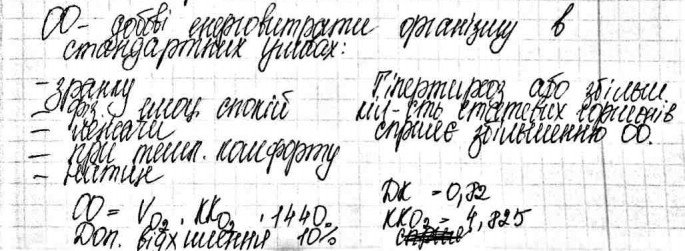 ОО - добові енерговитрати організму в
стандартних умовах:
- зранку
- фіз. емоц. спокій
- лежачи
- при темп. комфорту
- натще
Гіпертиреоз або збільш.
кіл-сть статевих гормонів
сприяє збільшенню ОО.
ОО = VO2 · KKO2 · 1440.
Доп. відхилення 10%
ДК = 0,82
KKO2 = 4,825